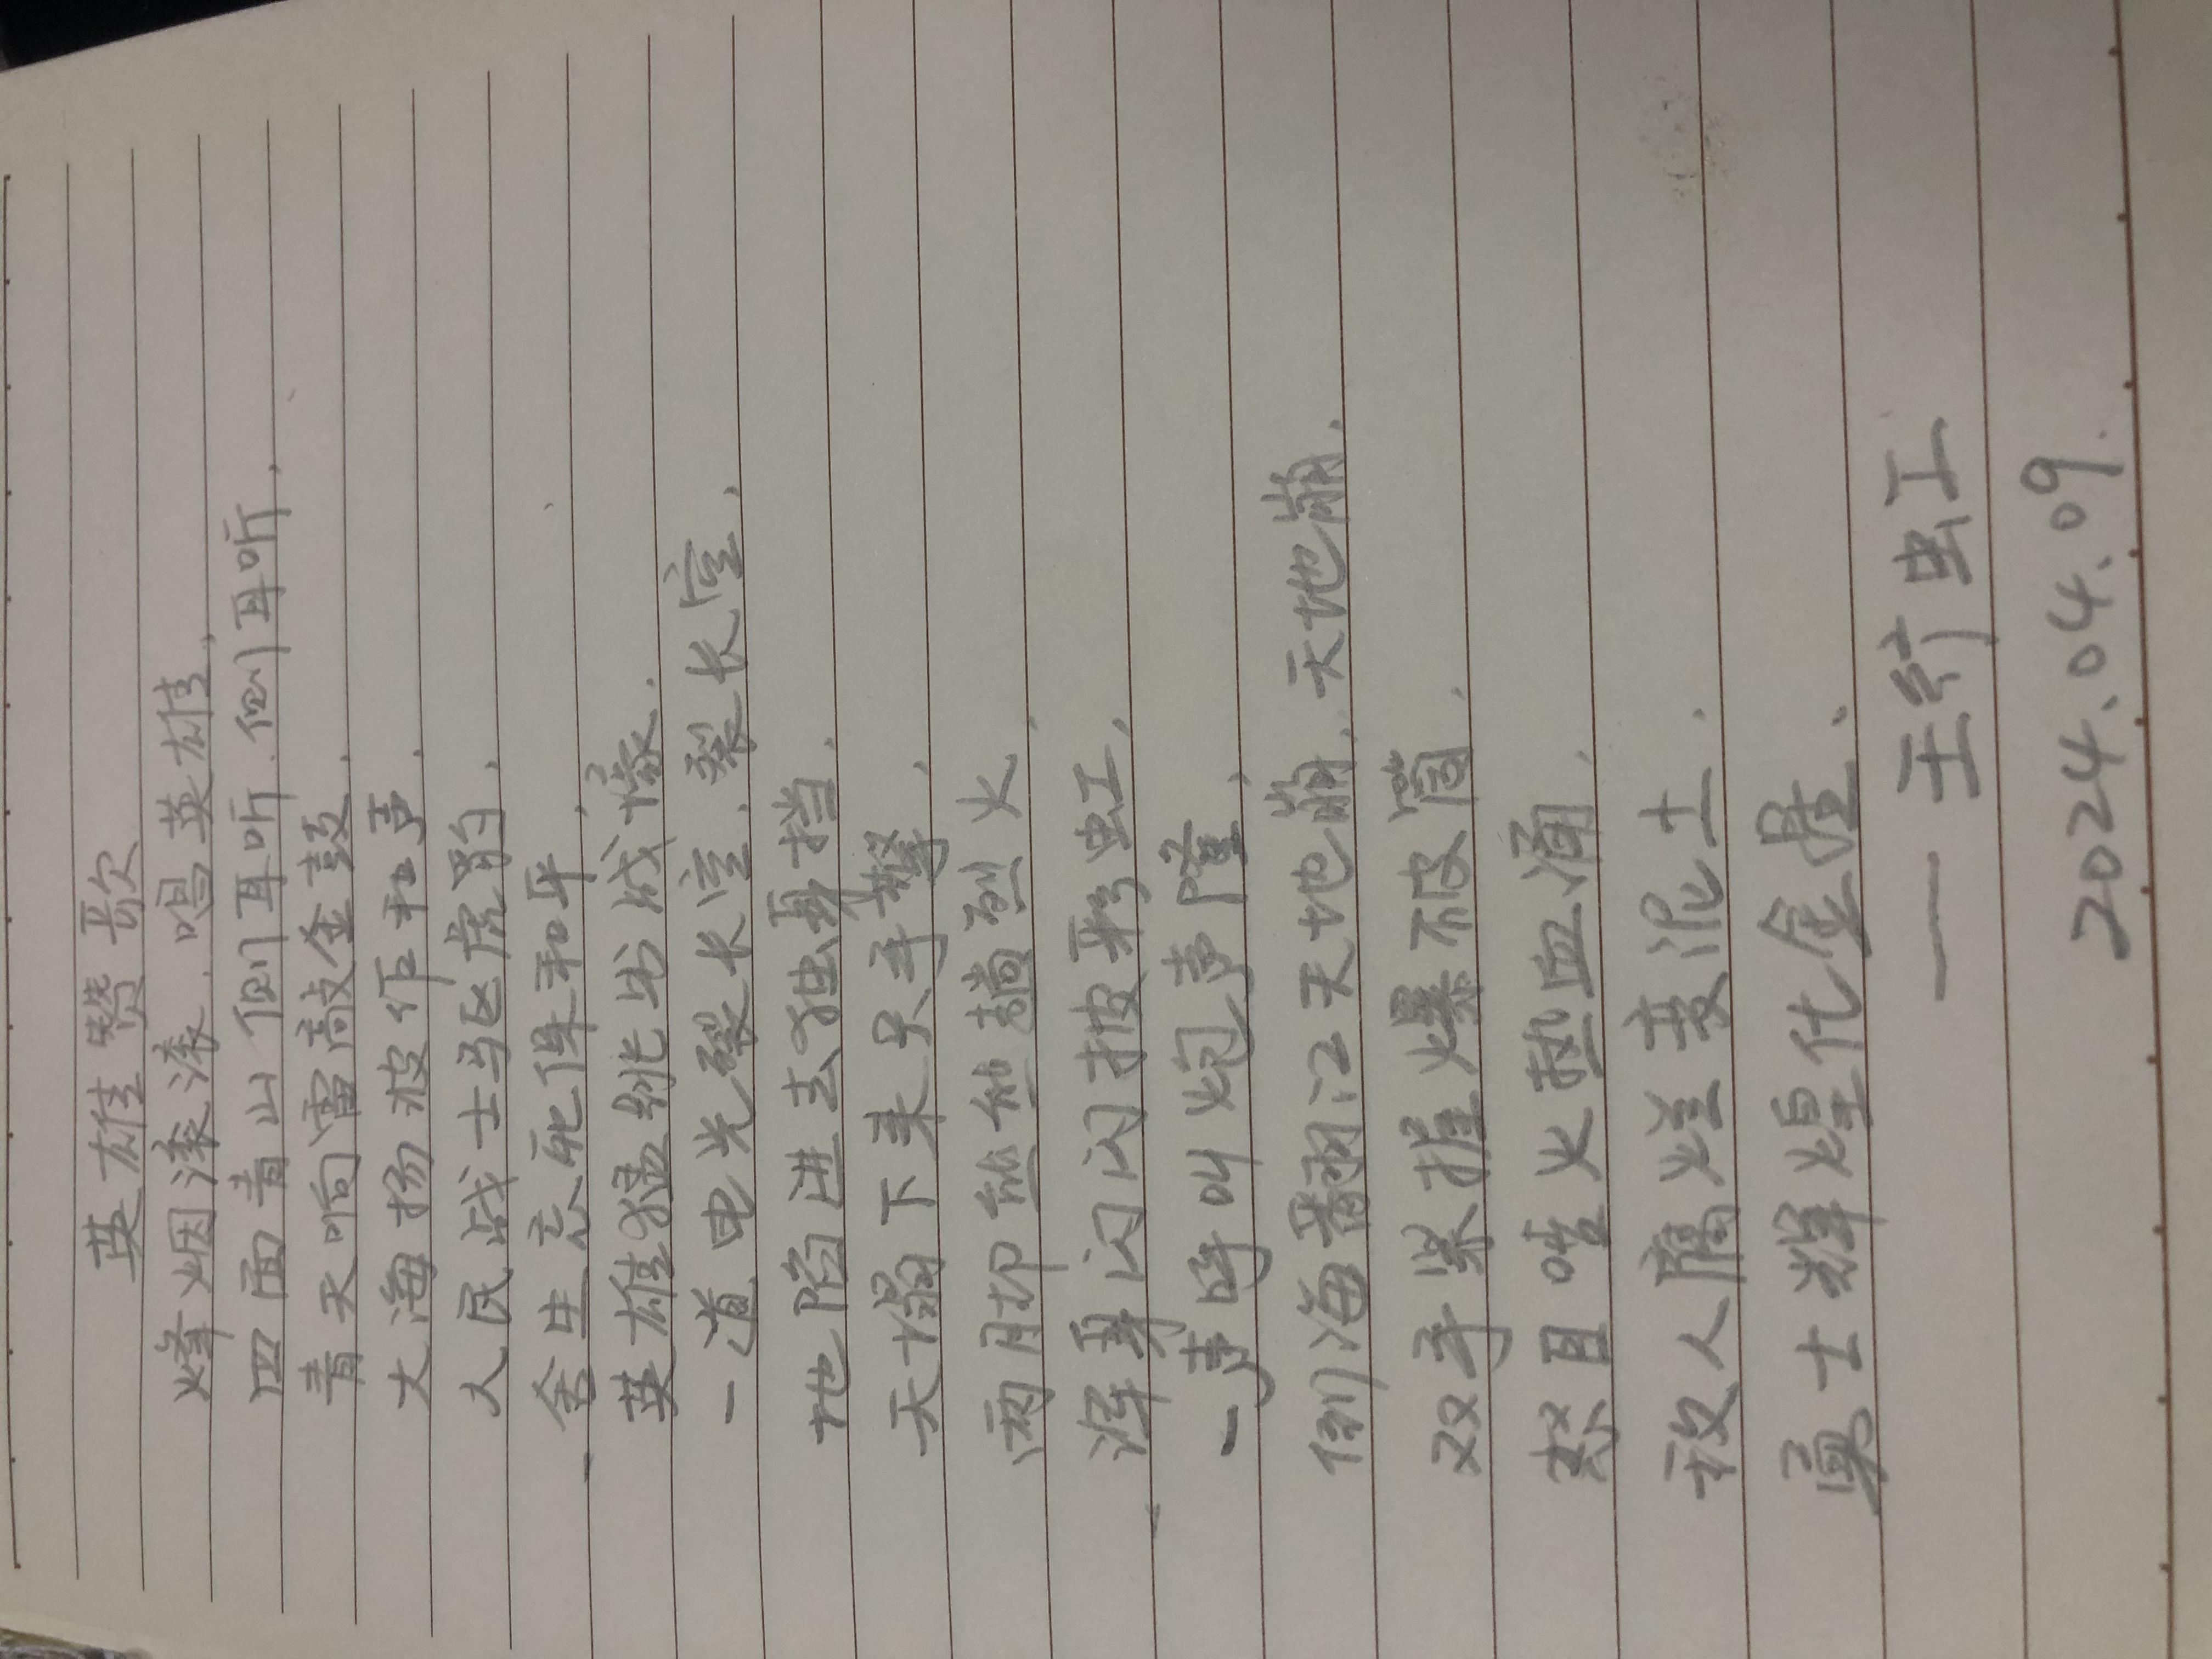 英雄赞歌
烽烟滚滚.唱英雄,
四面青山侧耳听.侧耳听,
青天响雷敲金鼓,
大海扬波作和声,
人民战士驱虎豹,
舍生忘死保和平,
英雄猛跳出战壕,
一道电光裂长空.裂长空,
地陷进去独身挡,
天塌下来只手擎,
两脚熊熊趟烈火,
浑身闪闪披彩虹,
一声呼叫炮声隆,
倒海翻江天地崩.天地崩,
双手紧握爆破筒,
怒目喷火热血涌,
敌人腐烂变泥土,
勇士辉煌化金星,
——王纩虹
2024.04.09.